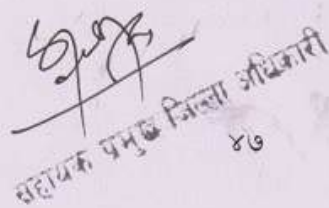 सहायक प्रमुख जिल्ला अधिकारी
४७